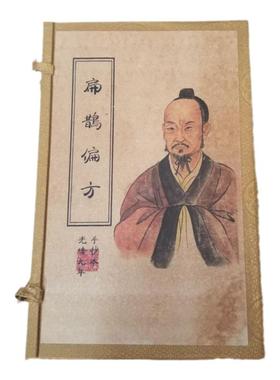 扁鹊偏方
手抄本
光绪九年